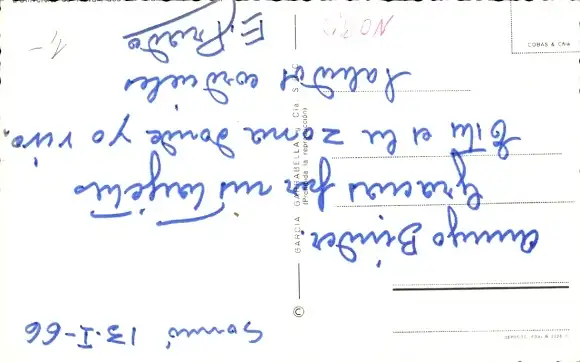 13-I-66
Amigo Binder:
Gracias por mi tarjeta
Esta es la zona donde yo vivo.
Saludos cordiales
E. Prado
GARCIA GARRABELLA y Cía.
(Prohibida la reproducción)
©
1,-